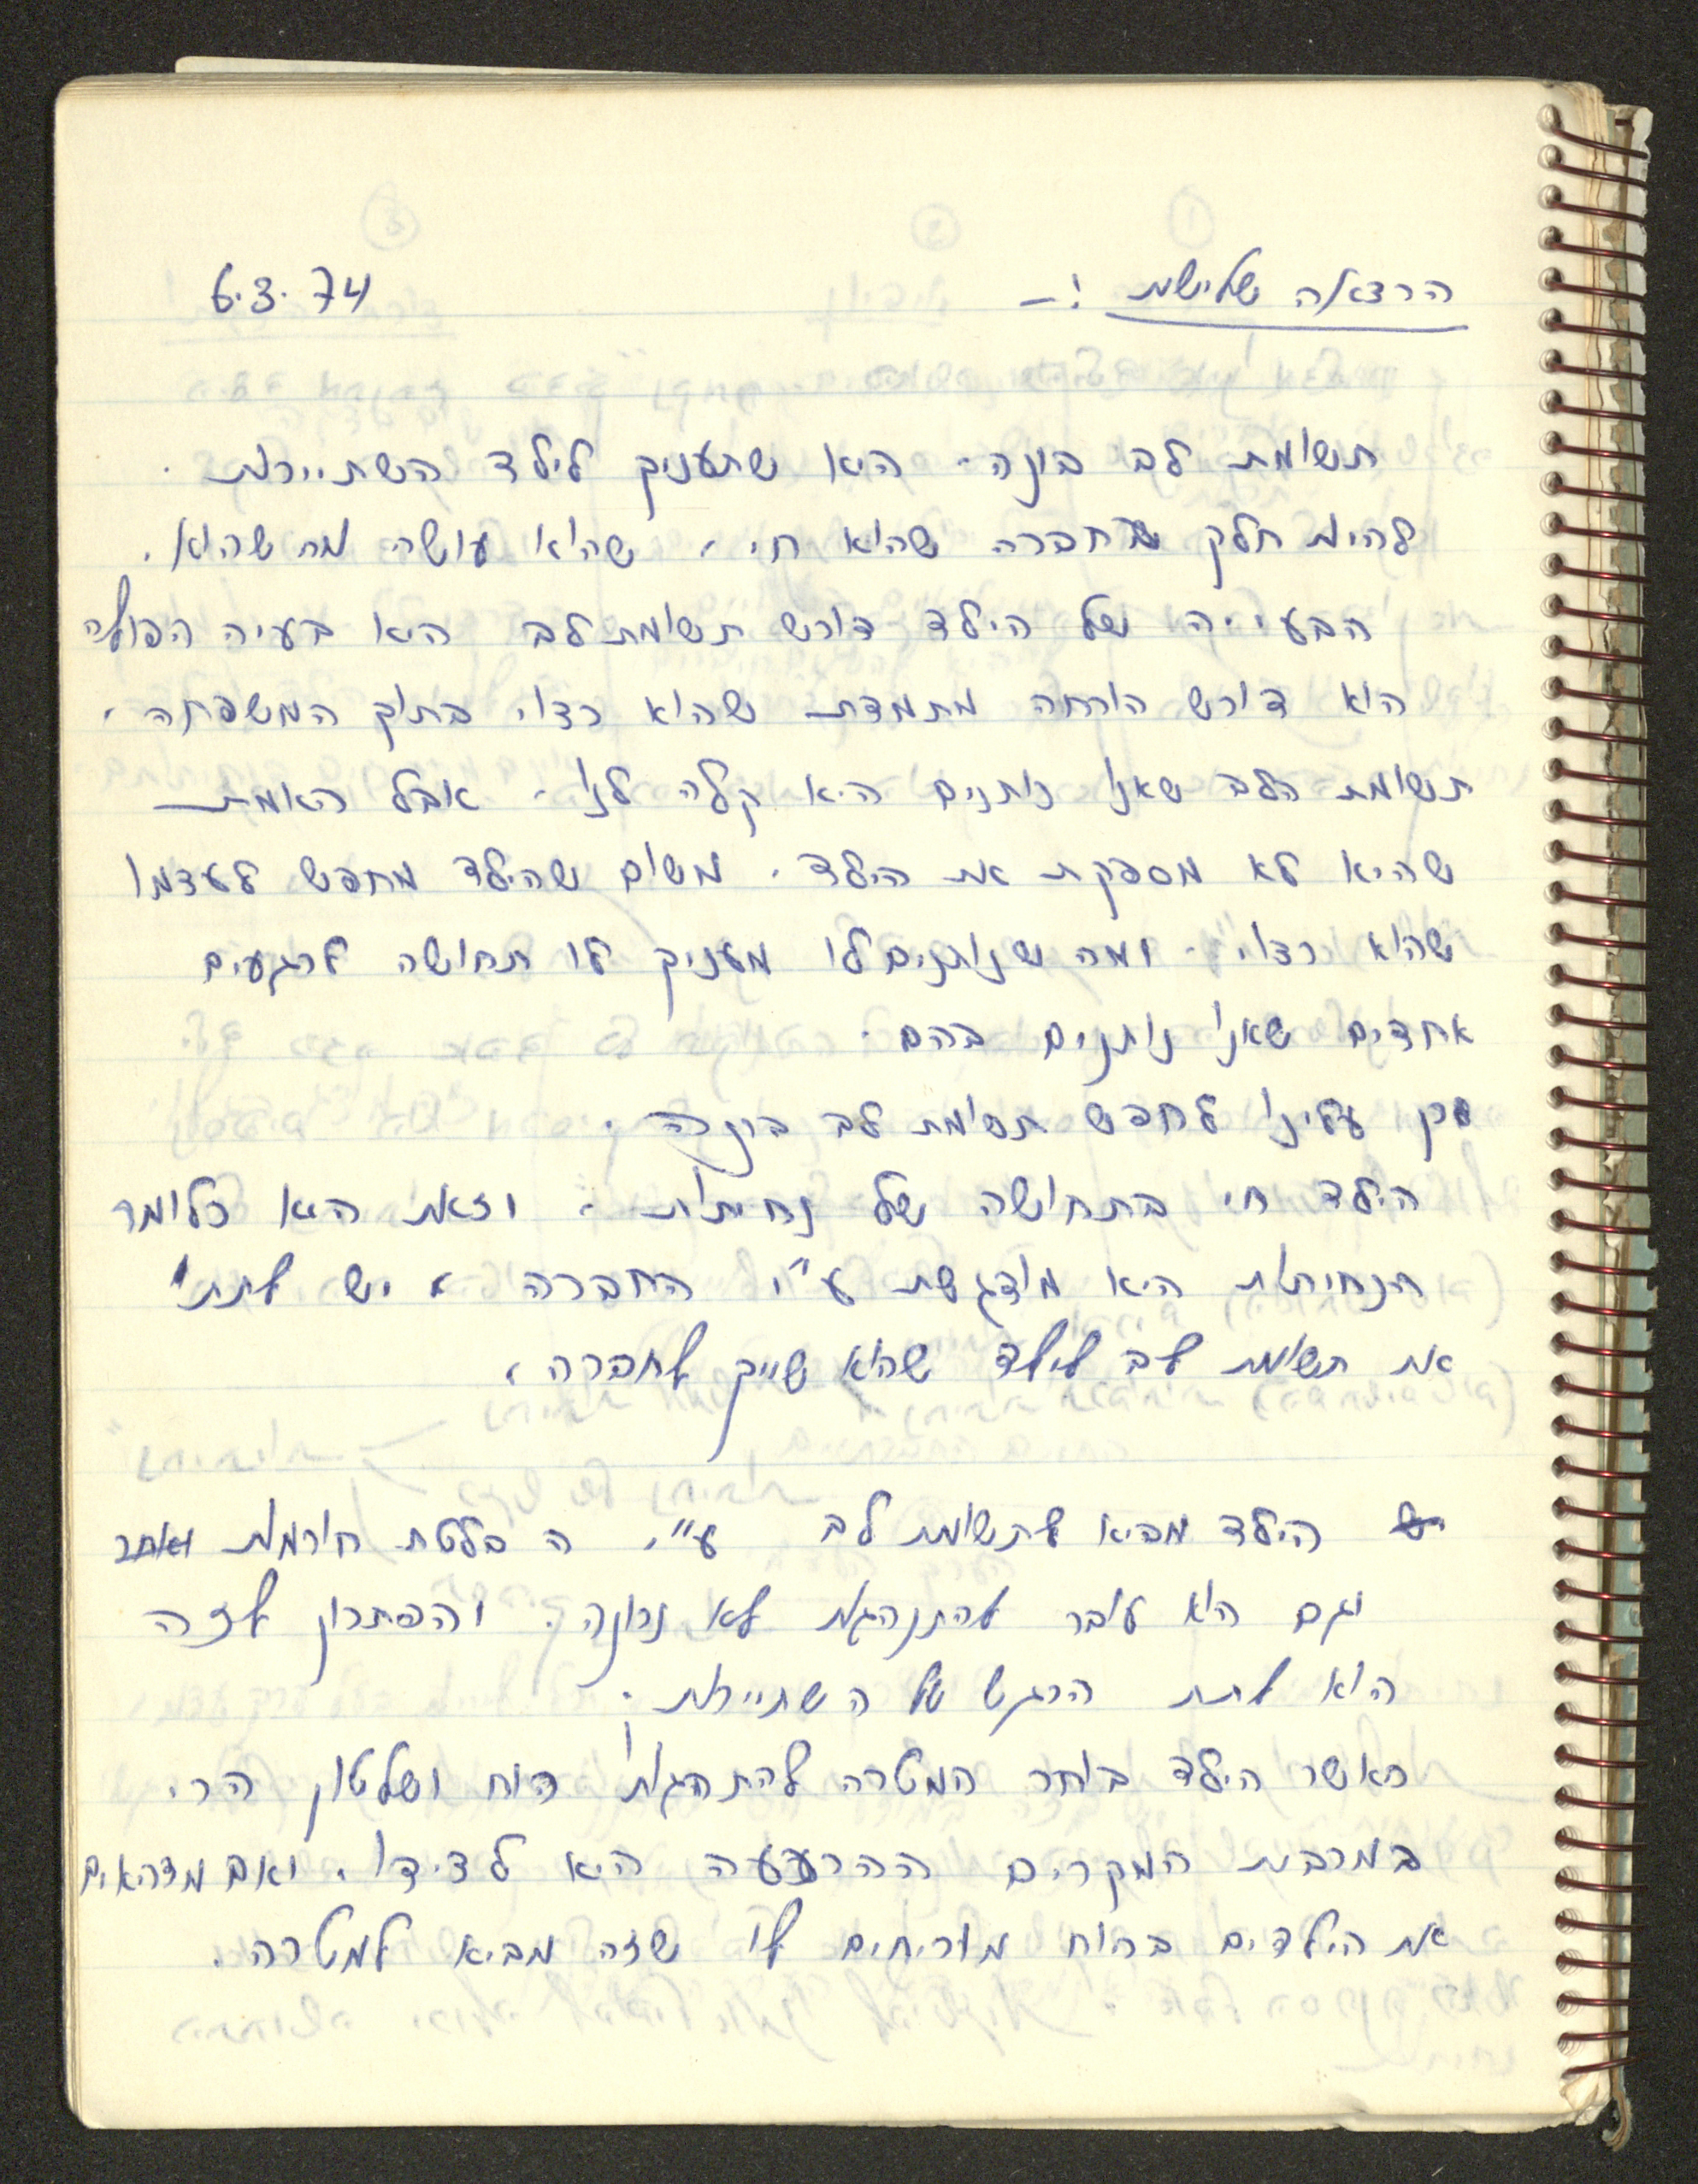 הרצאה שלישית :-
6.3.74
תשומת לב בונה. היא שתעניק לילד השתייכות.
להיות חלק מחברה שהוא חי, שהוא עושה מה שהוא.
הבעייה של הילד דורש תשומת לב היא בעיה הפולה
הוא דורש הוכחה מתמדת שהוא רצוי בתוך המשפחה,
תשומת הלב שאנו נותנים היא קלה לנו. אבל האמת
שהיא לא מספקת את הילד. משום שהילד מחפש לעצמו
שהוא רצוי. ומה שנותנים לו מעניק לו תחושה לרגעים
אחדים שאנו נותנים בהם.
לכן עלינו לחפש תשומת לב בונה.
הילד חי בתחושה של נחיתות, וזאת היא כלומר
הנחיתות היא מודגשת ע"י החברה, יש לתת
את תשומת לב לילד שהוא שייך לחברה,
הילד מביא לתשומת לב ע"י הבלטת חורמות ואחר
וגם הוא עובר להתנהגות לא נכונה. והפתרון לזה
הוא לתת הרגש של השתייכות.
כאשר הילד בוחר המטרה להתנהגותו הוח ושלטון הרי
במרבית המקרים ההרעעה היא לצידו, ואם מדכאים
את הילדים בכוח מוכיחים לו שזה מביא למטרה.